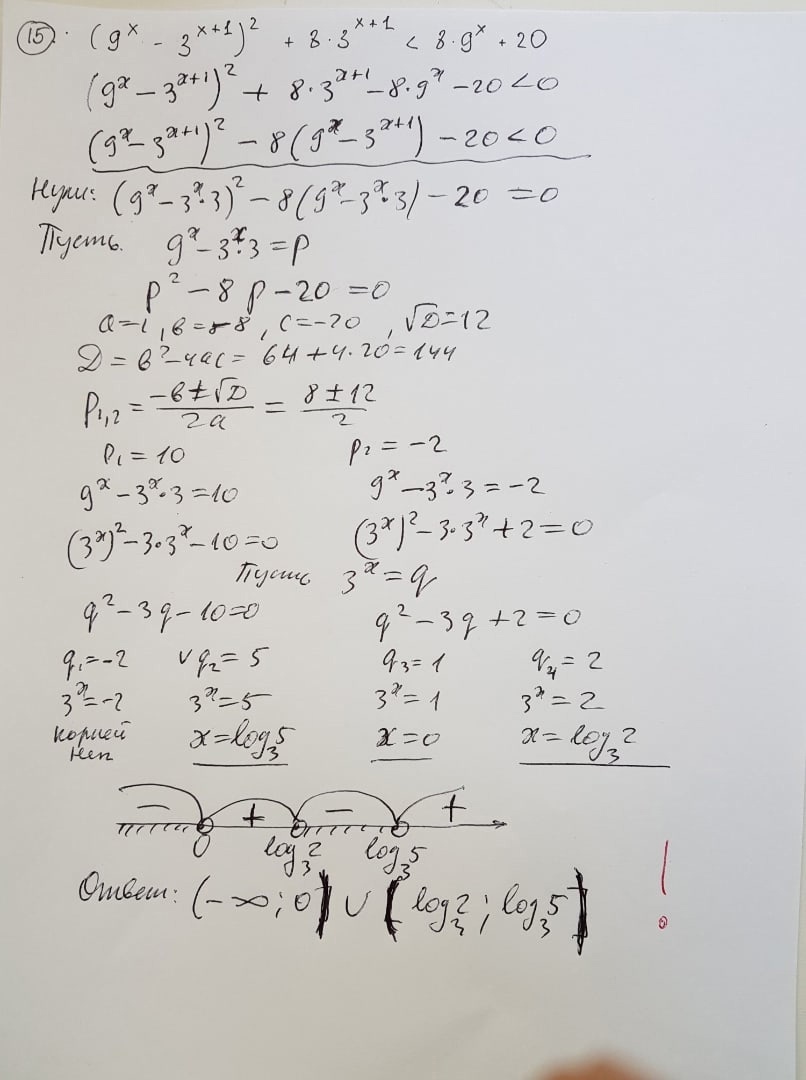 15. (9^x - 3^{x+1})^2 + 8·3^{x+1} < 8·9^x + 20
(9^x - 3^{x+1})^2 + 8·3^{x+1} - 8·9^x - 20 < 0
(9^x - 3^{x+1})^2 - 8(9^x - 3^{x+1}) - 20 < 0
Нули: (9^x - 3^x·3)^2 - 8(9^x - 3^x·3) - 20 = 0
Пусть 9^x - 3^x·3 = p
p^2 - 8p - 20 = 0
a=1, в=-8, c=-20, √D=12
D = в^2-4ac = 64+4·20=144
P_{1,2} = \frac{-в±√D}{2a} = \frac{8±12}{2}
p_1 = 10 p_2 = -2
9^x - 3^x·3 = 10 9^x - 3^x·3 = -2
(3^x)^2 - 3·3^x - 10 = 0 (3^x)^2 - 3·3^x + 2 = 0
Пусть 3^x = q
q^2 - 3q - 10 = 0 q^2 - 3q + 2 = 0
q_1 = -2 ∨ q_2 = 5 q_3 = 1 q_4 = 2
3^x = -2 3^x = 5 3^x = 1 3^x = 2
корней нет x = log_3 5 x = 0 x = log_3 2
- + - +
0 log_3 2 log_3 5
Ответ: (-∞; 0) ∪ (log_3 2; log_3 5)
!